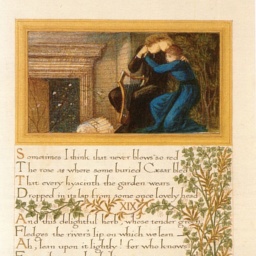 Sometimes I think that never blows so red
The rose as where some buried Cæsar bled
That every hyacinth the garden wears
Dropped in its lap from some once lovely head
And this delightful herb, whose tender
Fledges the river's lip on which we lean
Ah, lean upon it lightly! for who knows